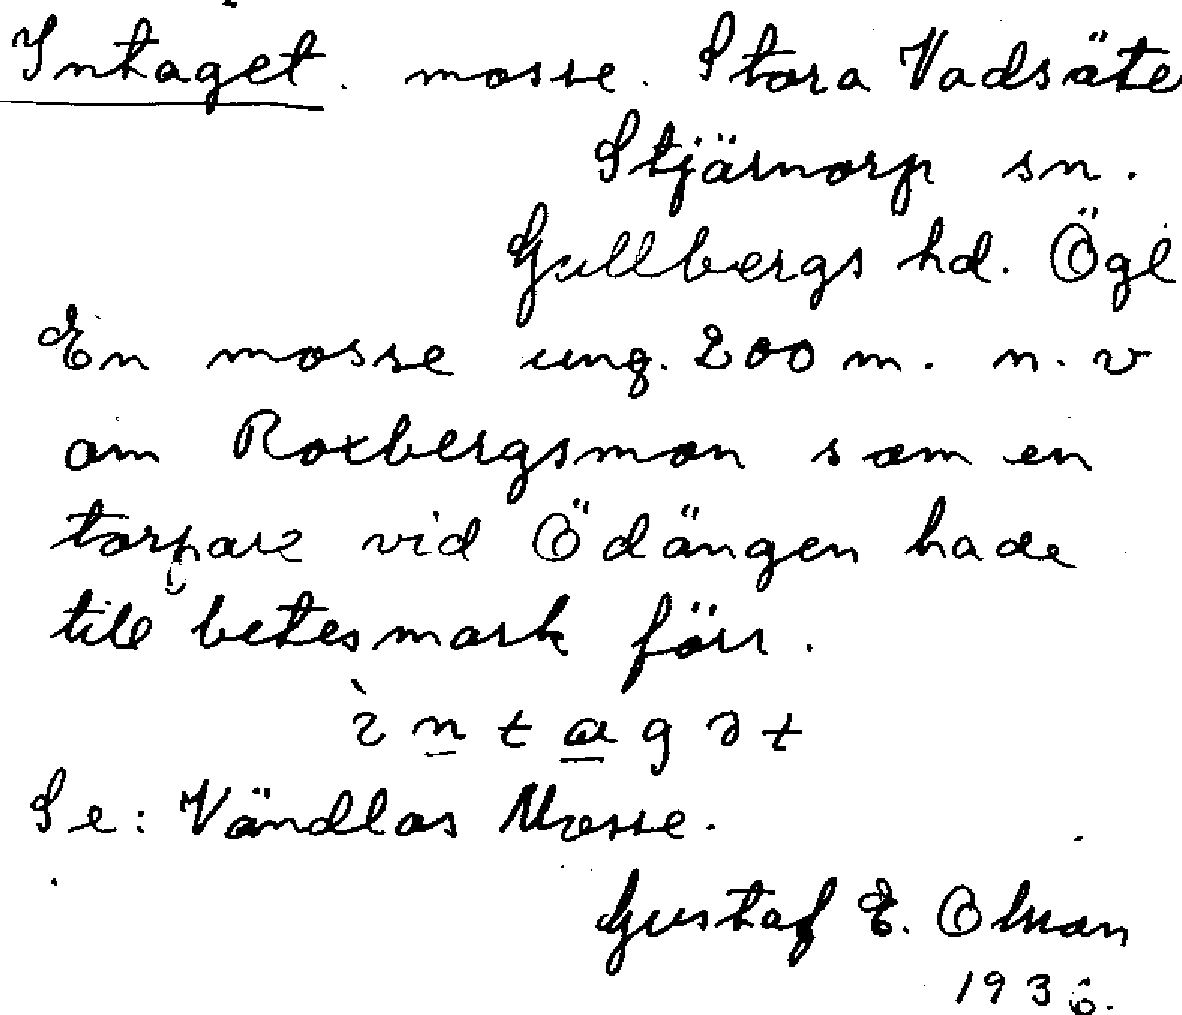 Intaget. mosse. Stora Vadsäte
Stjärnorp sn.
Gullbergs hd. Ögl
En mosse ung. 200 m. n. v
om Roxbergsmon som en
torpare vid Ödängen hade
till betesmark förr.
ìntagət
Se: Vändlas Mosse.
Gustaf E. Olsson
1936.